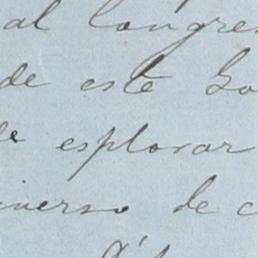 al congre
de este Go
de esplorar
inverso de c